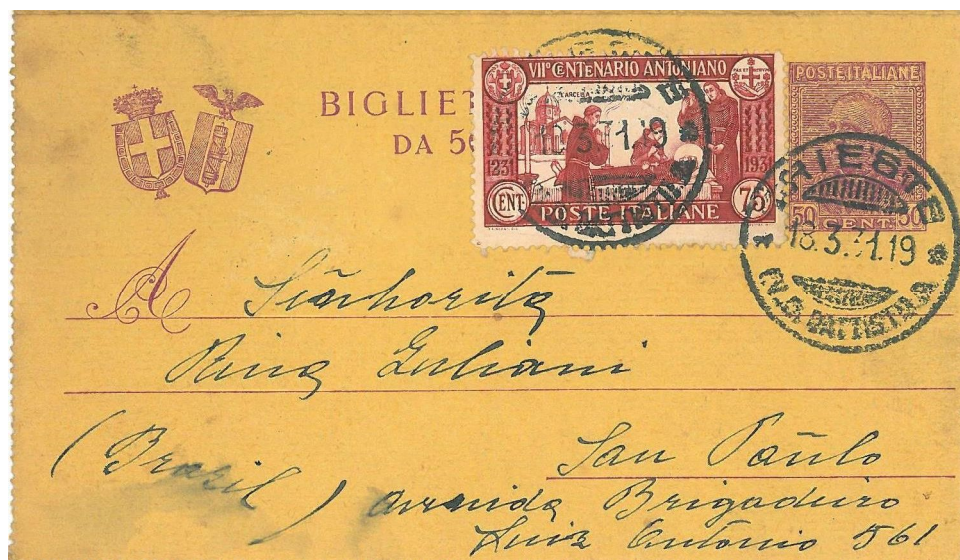 BIGLIE
DA 5
VII° CENTENARIO ANTONIANO
PAX ET BONUM
L'ARCELLA
1231 1931
CENT. 75
POSTE ITALIANE
POSTE ITALIANE
50 CENT. 50
TRIESTE
18.3.31.19
BATTISTI
A Sinhorita
Rina Giuliani
San Paulo
(Brasil) Avenida Brigadeiro
Luiz Antonio 561